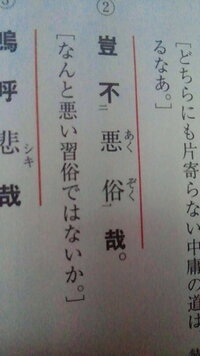 [どちらにも片寄らない中庸の道は
るなあ。]
② 豈不二悪俗一哉。
あく ぞく
[なんと悪い習俗ではないか。]
嗚呼悲哉
シキ